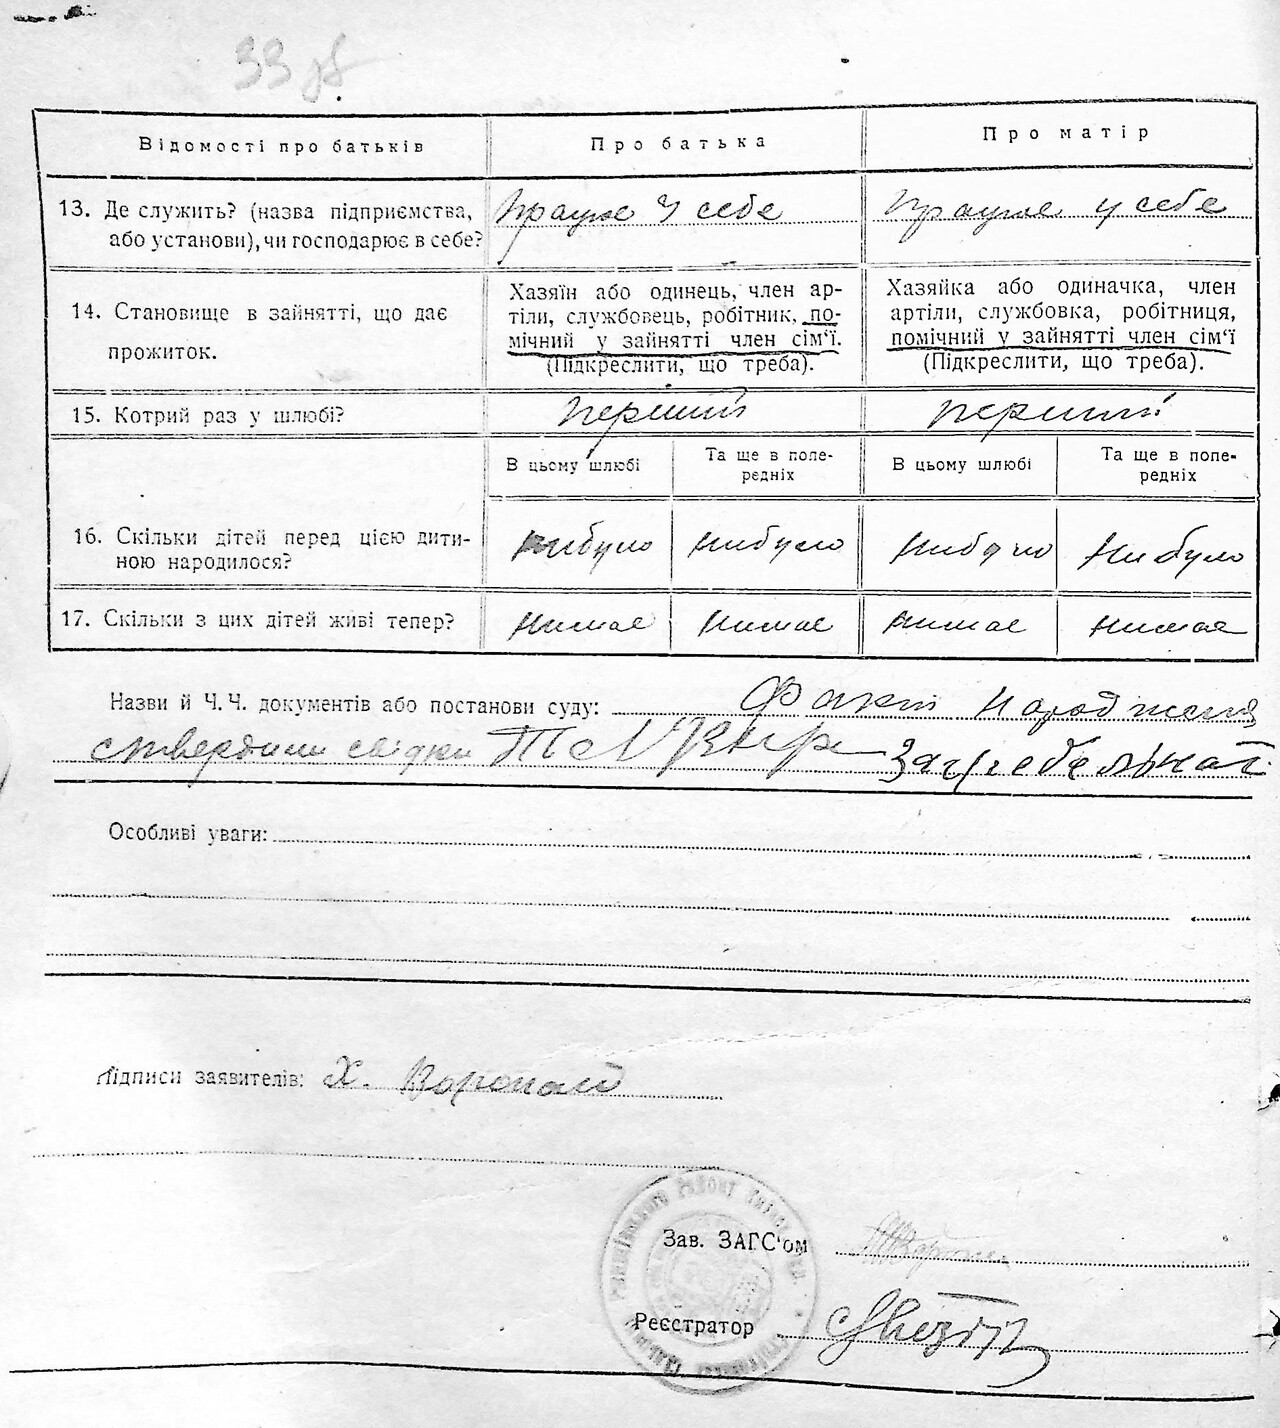 33
Відомості про батьків
Про батька
Про матір
13. Де служить? (назва підприємства,
або установи), чи господарює в себе?
працює у себе
працює у себе
14. Становище в зайнятті, що дає
прожиток.
Хазяїн або одинець, член ар-
тіли, службовець, робітник, по-
мічний у зайнятті член сім'ї.
(Підкреслити, що треба).
Хазяйка або одиначка, член
артіли, службовка, робітниця,
помічний у зайнятті член сім'ї
(Підкреслити, що треба).
15. Котрий раз у шлюбі?
перший
перший
В цьому шлюбі
Та ще в попе-
редніх
В цьому шлюбі
Та ще в попе-
редніх
16. Скільки дітей перед цією дити-
ною народилося?
нибуло
нибуло
нибуло
нибуло
17. Скільки з цих дітей живі тепер?
нимає
нимає
нимає
нимає
Назви й Ч. Ч. документів або постанови суду: Факт народження
ствердили свідки
Особливі уваги:
Підписи заявителів: Х. Воропай
району
Зав. ЗАГС'ом
Реєстратор